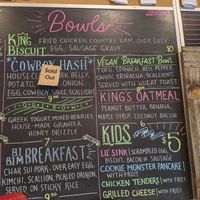 Bowls
KING BISCUIT
FRIED CHICKEN, COUNTRY HAM, OVER EASY EGG, SAUSAGE GRAVY
10
COWBOY HASH
Sold Out
HOUSE
POTATO
ONION,
EGG, COWBOY SAUCE, SCALLIONS
9
GREEK YOGURT, MIXED BERRIES
HOUSE-MADE GRANOLA,
HONEY DRIZZLE
BIM BREAKFAST
CHAR SIU PORK, OVER EASY EGG,
KIMCHI, SCALLION, PICKLED DAIKON,
SERVED ON STICKY RICE
VEGAN BREAKFAST BOWL
TOFU, SPINACH, BELL PEPPER,
ONION, SRIRACHA, SCALLIONS
SERVED WITH WHEAT TOAST
8
KING'S OATMEAL
PEANUT BUTTER, BANANA,
MAPLE SYRUP, COCONUT
KIDS
$5
LIL SINK SCRAMBLED EGG,
BISCUIT, BACON or SAUSAGE
COOKIE MONSTER PANCAKE
WITH FRUIT
CHICKEN TENDERS WITH FRIES
GRILLED CHEESE WITH FRIES